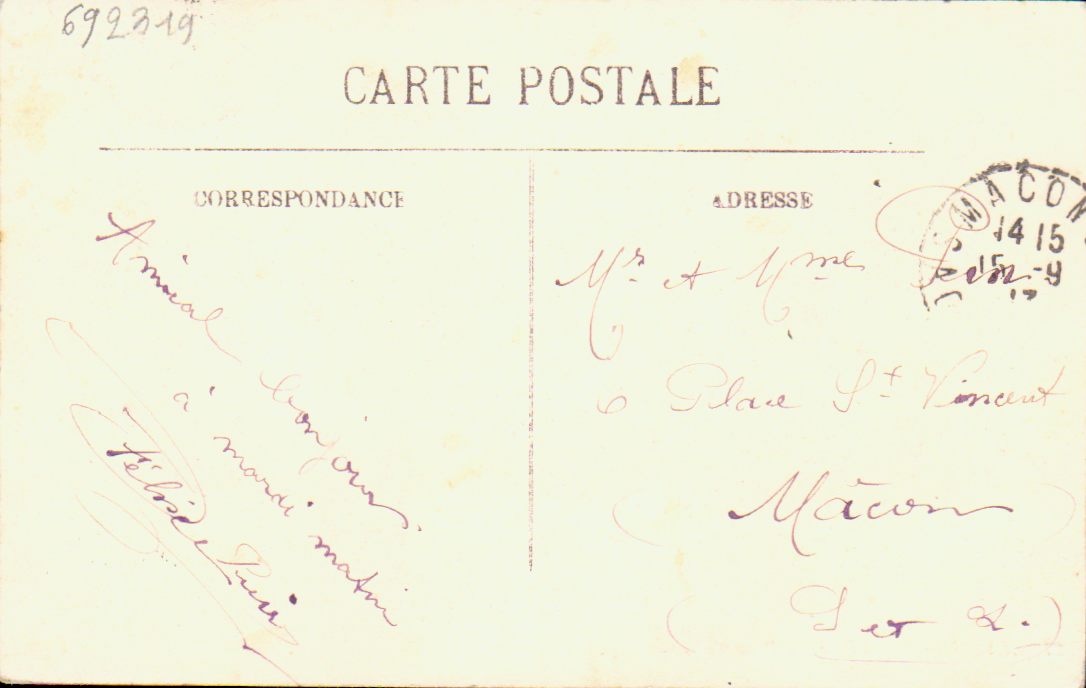 692319
CARTE POSTALE
CORRESPONDANCE
ADRESSE
Amical bonjour
à mardi matin
Félix
MACON
14 15
15 -9
Mr et Mme
6 Place St Vincent
Mâcon
(S et L.)